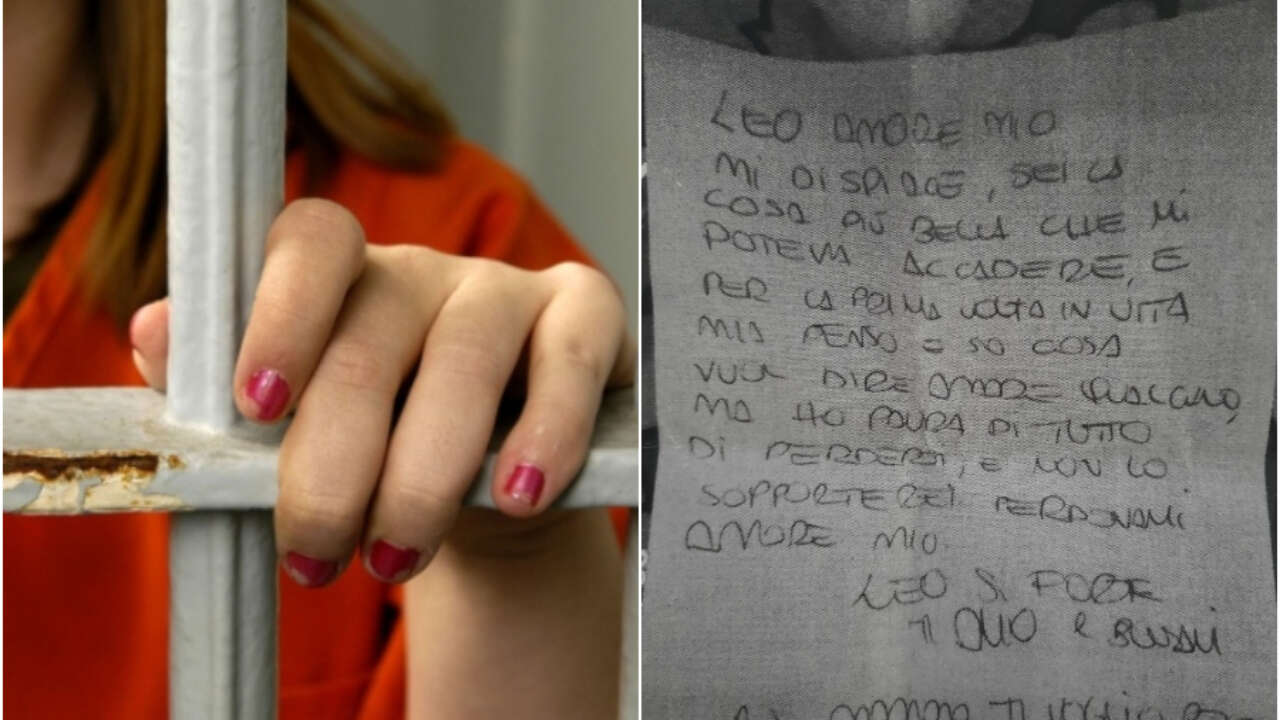 LEO AMORE MIO
MI DISPIACE, SEI LA
COSA PIÙ BELLA CHE MI
POTEVA ACCADERE, E
PER LA PRIMA VOLTA IN VITA
MIA PENSO E SO COSA
VUOL DIRE AMORE QUALCUNO,
MA HO PAURA DI TUTTO
DI PERDERTI, E NON LO
SOPPORTEREI PERDONAMI
AMORE MIO
LEO SI FORTE
TI AMO E